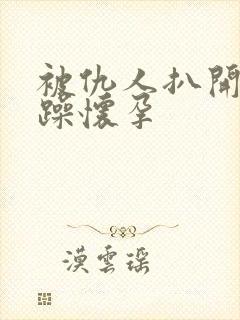 被仇人扒開
躁懷孕
漠雲瑶